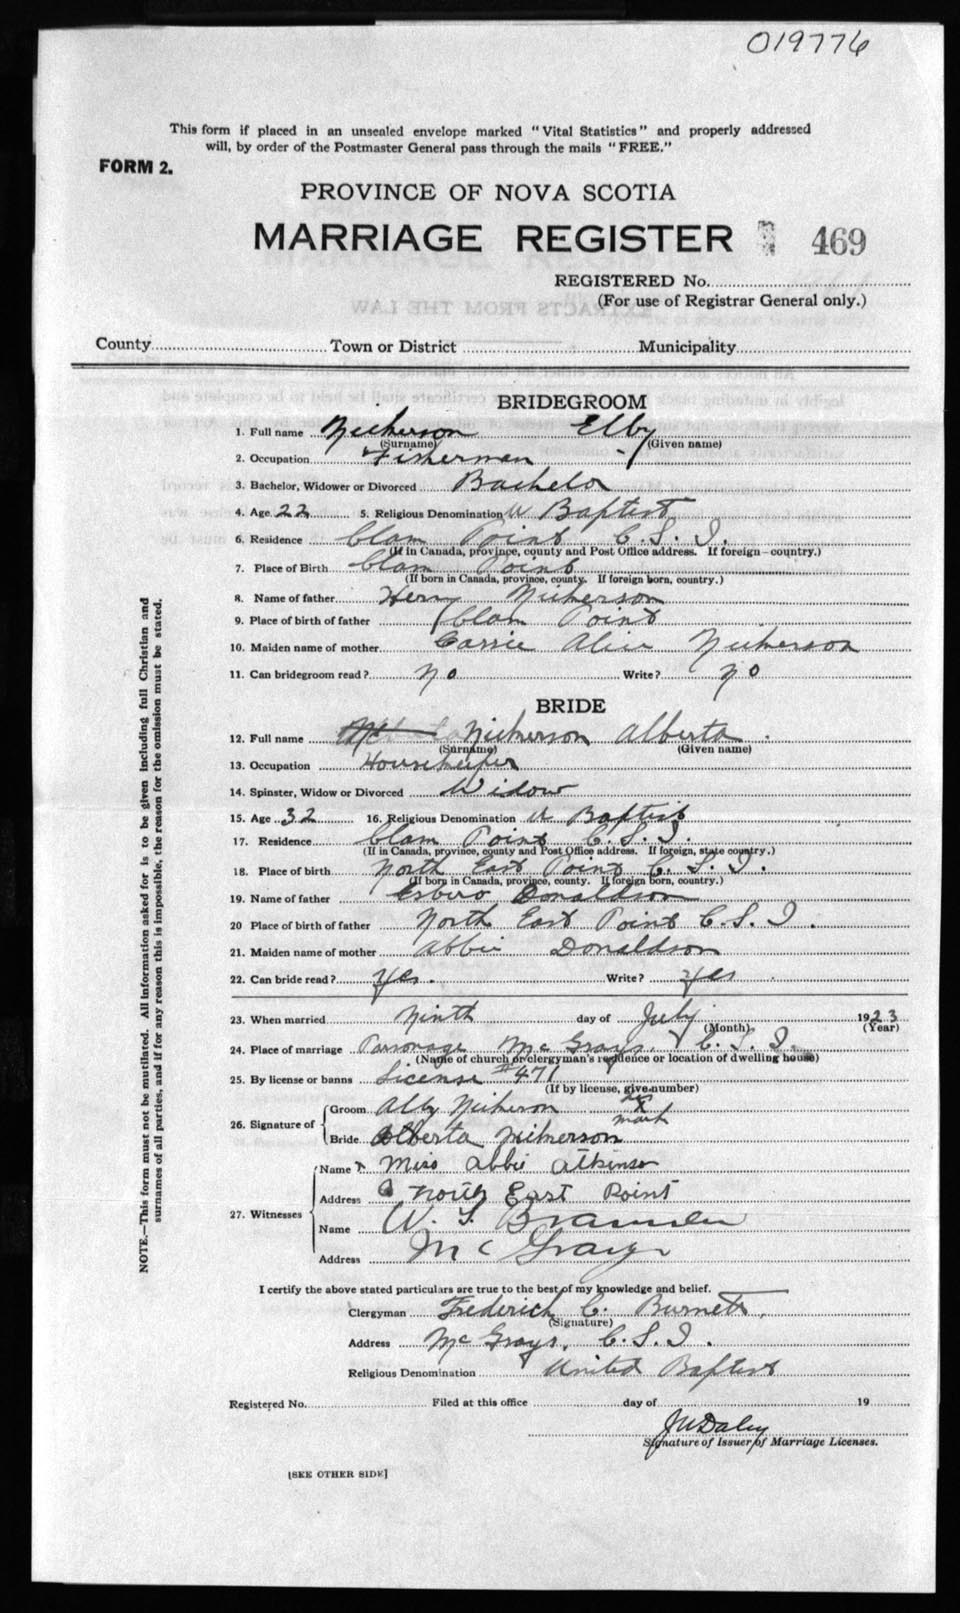 019776
This form if placed in an unsealed envelope marked "Vital Statistics" and properly addressed
will, by order of the Postmaster General pass through the mails "FREE."
FORM 2.
PROVINCE OF NOVA SCOTIA
MARRIAGE REGISTER 469
REGISTERED No.
(For use of Registrar General only.)
County Town or District Municipality
BRIDEGROOM
1. Full name Nickerson Elby
(Surname) (Given name)
2. Occupation Fisherman
3. Bachelor, Widower or Divorced Bachelor
4. Age 22 5. Religious Denomination U Baptist
6. Residence Clam Point C. S. I.
(If in Canada, province, county and Post Office address. If foreign—country.)
7. Place of Birth Clam Point
(If born in Canada, province, county. If foreign born, country.)
8. Name of father Nickerson
9. Place of birth of father Clam Point
10. Maiden name of mother Carrie Alice Nickerson
11. Can bridegroom read? No Write? No
BRIDE
12. Full name Nickerson Alberta
(Surname) (Given name)
13. Occupation Housekeeper
14. Spinster, Widow or Divorced Widow
15. Age 32 16. Religious Denomination U Baptist
17. Residence Clam Point C. S. I.
(If in Canada, province, county and Post Office address. If foreign, state country.)
18. Place of birth North East Point C. S. I.
(If born in Canada, province, county. If foreign born, country.)
19. Name of father Donaldson
20 Place of birth of father North East Point C. S. I.
21. Maiden name of mother Abbie Donaldson
22. Can bride read? Yes. Write? Yes
23. When married Ninth day of July 1923
(Month) (Year)
24. Place of marriage Parsonage McGrays, C. S. I.
(Name of church or clergyman's residence or location of dwelling house)
25. By license or banns License #471
(If by license, give number)
26. Signature of Groom Alby Nickerson his x mark
Bride Alberta Nickerson
27. Witnesses Name Miss Abbie Atkinson
Address North East Point
Name W. S.
Address McGrays
I certify the above stated particulars are true to the best of my knowledge and belief.
Clergyman Frederick C. Burnett
(Signature)
Address McGrays, C. S. I.
Religious Denomination United Baptist
Registered No. Filed at this office day of 19
JW Daley
Signature of Issuer of Marriage Licenses.
[SEE OTHER SIDE]
NOTE.—This form must not be mutilated. All information asked for is to be given including full Christian and
surnames of all parties, and if for any reason this is impossible, the reason for the omission must be stated.